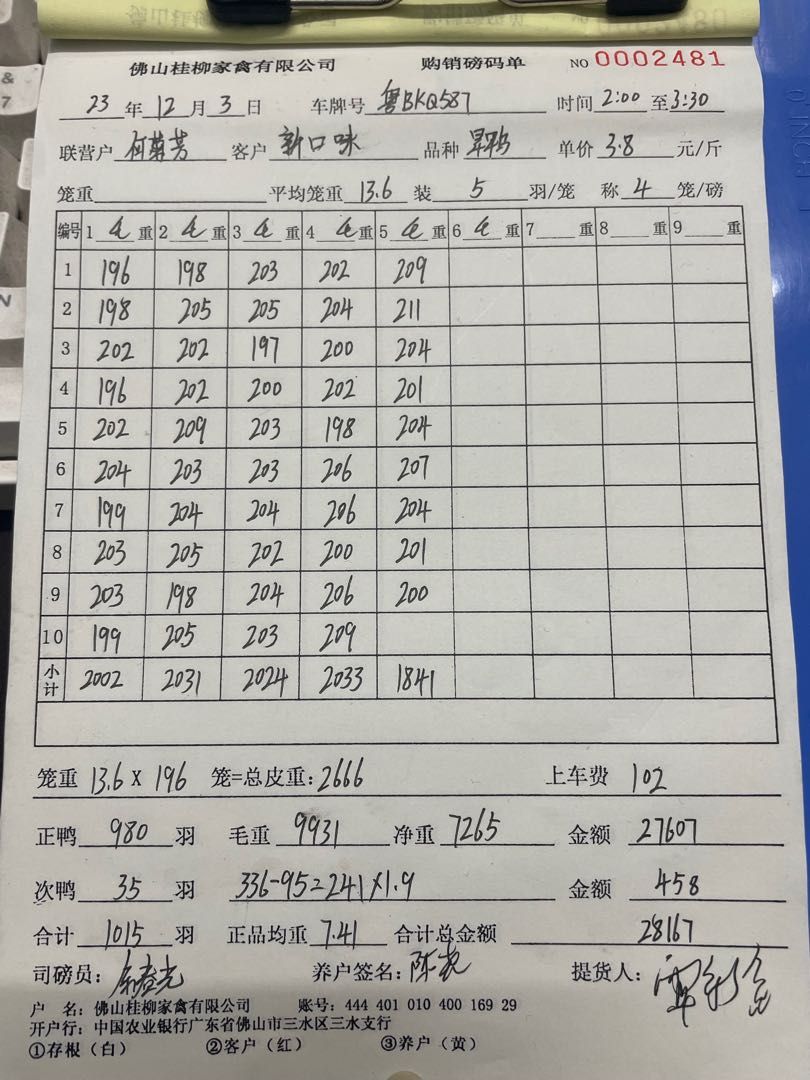 佛山桂柳家禽有限公司 购销磅码单 NO 0002481
23 年 12 月 3 日 车牌号 粤BKQ587 时间 2:00 至 3:30
联营户 何菊芳 客户 新口味 品种 单价 3.8 元/斤
笼重 平均笼重 13.6 装 5 羽/笼 称 4 笼/磅
编号 1 毛 重 2 毛 重 3 毛 重 4 毛 重 5 毛 重 6 毛 重 7 重 8 重 9 重
1 196 198 203 202 209
2 198 205 205 204 211
3 202 202 197 200 204
4 196 202 200 202 201
5 202 209 203 198 204
6 204 203 203 206 207
7 199 204 204 206 204
8 203 205 202 200 201
9 203 198 204 206 200
10 199 205 203 209
小计 2002 2031 2024 2033 1841
笼重 13.6 X 196 笼=总皮重: 2666 上车费 102
正鸭 980 羽 毛重 9931 净重 7265 金额 27607
次鸭 35 羽 336-95=241X1.9 金额 458
合计 1015 羽 正品均重 7.41 合计总金额 28167
司磅员: 养户签名: 提货人:
户 名: 佛山桂柳家禽有限公司 账号: 444 401 010 400 169 29
开户行: 中国农业银行广东省佛山市三水区三水支行
①存根(白) ②客户(红) ③养户(黄)